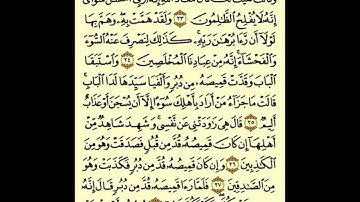 إِنَّهُۥ لَا يُفْلِحُ ٱلظَّٰلِمُونَ ٢٣ وَلَقَدْ هَمَّتْ بِهِۦ وَهَمَّ بِهَا
لَوْلَآ أَن رَّءَا بُرْهَٰنَ رَبِّهِۦ كَذَٰلِكَ لِنَصْرِفَ عَنْهُ ٱلسُّوٓءَ
وَٱلْفَحْشَآءَ إِنَّهُۥ مِنْ عِبَادِنَا ٱلْمُخْلَصِينَ ٢٤ وَٱسْتَبَقَا
ٱلْبَابَ وَقَدَّتْ قَمِيصَهُۥ مِن دُبُرٍ وَأَلْفَيَا سَيِّدَهَا لَدَا ٱلْبَابِ
قَالَتْ مَا جَزَآءُ مَنْ أَرَادَ بِأَهْلِكَ سُوٓءًا إِلَّآ أَن يُسْجَنَ أَوْ عَذَابٌ
أَلِيمٌ ٢٥ قَالَ هِىَ رَٰوَدَتْنِى عَن نَّفْسِى وَشَهِدَ شَاهِدٌ مِّنْ
أَهْلِهَآ إِن كَانَ قَمِيصُهُۥ قُدَّ مِن قُبُلٍ فَصَدَقَتْ وَهُوَ مِنَ
ٱلْكَٰذِبِينَ ٢٦ وَإِن كَانَ قَمِيصُهُۥ قُدَّ مِن دُبُرٍ فَكَذَبَتْ وَهُوَ
مِنَ ٱلصَّٰدِقِينَ ٢٧ فَلَمَّا رَءَا قَمِيصَهُۥ قُدَّ مِن دُبُرٍ قَالَ إِنَّهُۥ